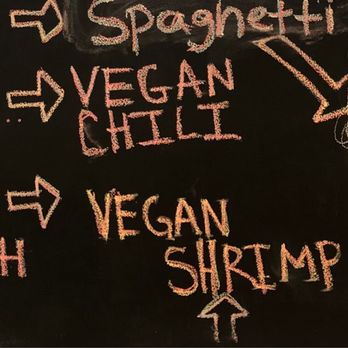 Spaghetti
VEGAN
CHILI
VEGAN
H
SHRIMP